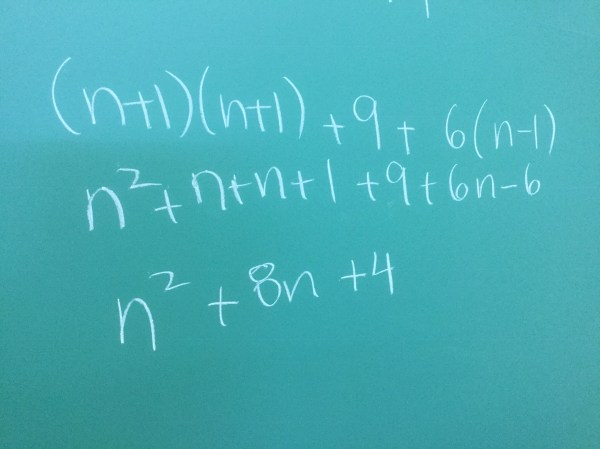 (n+1)(n+1) + 9 + 6(n-1)
n² + n+n+1 +9+6n-6
n² + 8n +4